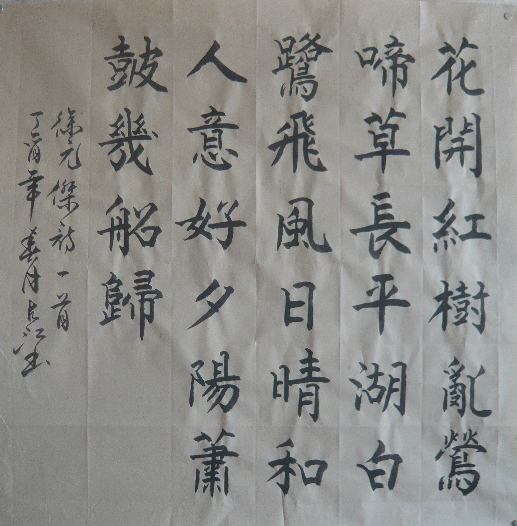 花開紅樹亂鶯
啼草長平湖白
鷺飛風日晴和
人意好夕陽蕭
鼓幾船歸
徐元傑詩一首
丁酉年春月